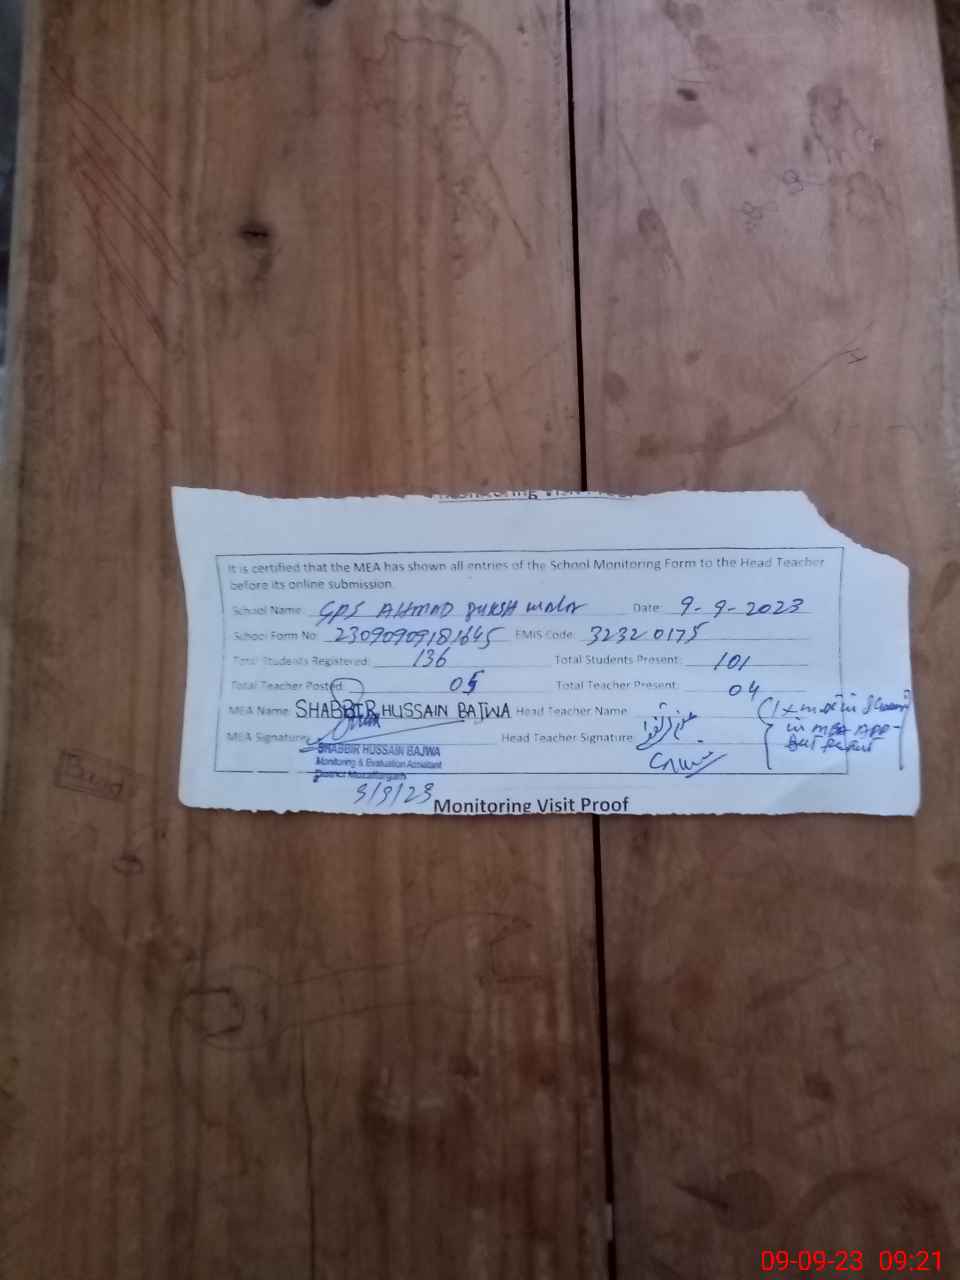 Monitoring Visit Proof
It is certified that the MEA has shown all entries of the School Monitoring Form to the Head Teacher
before its online submission.
School Name: GPS AHMAD BUKSH WALA Date: 9-9-2023
School Form No: 23090909181645 EMIS Code: 32320175
Total Students Registered: 136 Total Students Present: 101
Total Teacher Posted: 05 Total Teacher Present: 04
MEA Name: SHABBIR HUSSAIN BAJWA Head Teacher Name
MEA Signature: Head Teacher Signature
in MEA APP-
SHABBIR HUSSAIN BAJWA
Monitoring & Evaluation Assistant
District Muzaffargarh
9/9/23
Monitoring Visit Proof
09-09-23 09:21